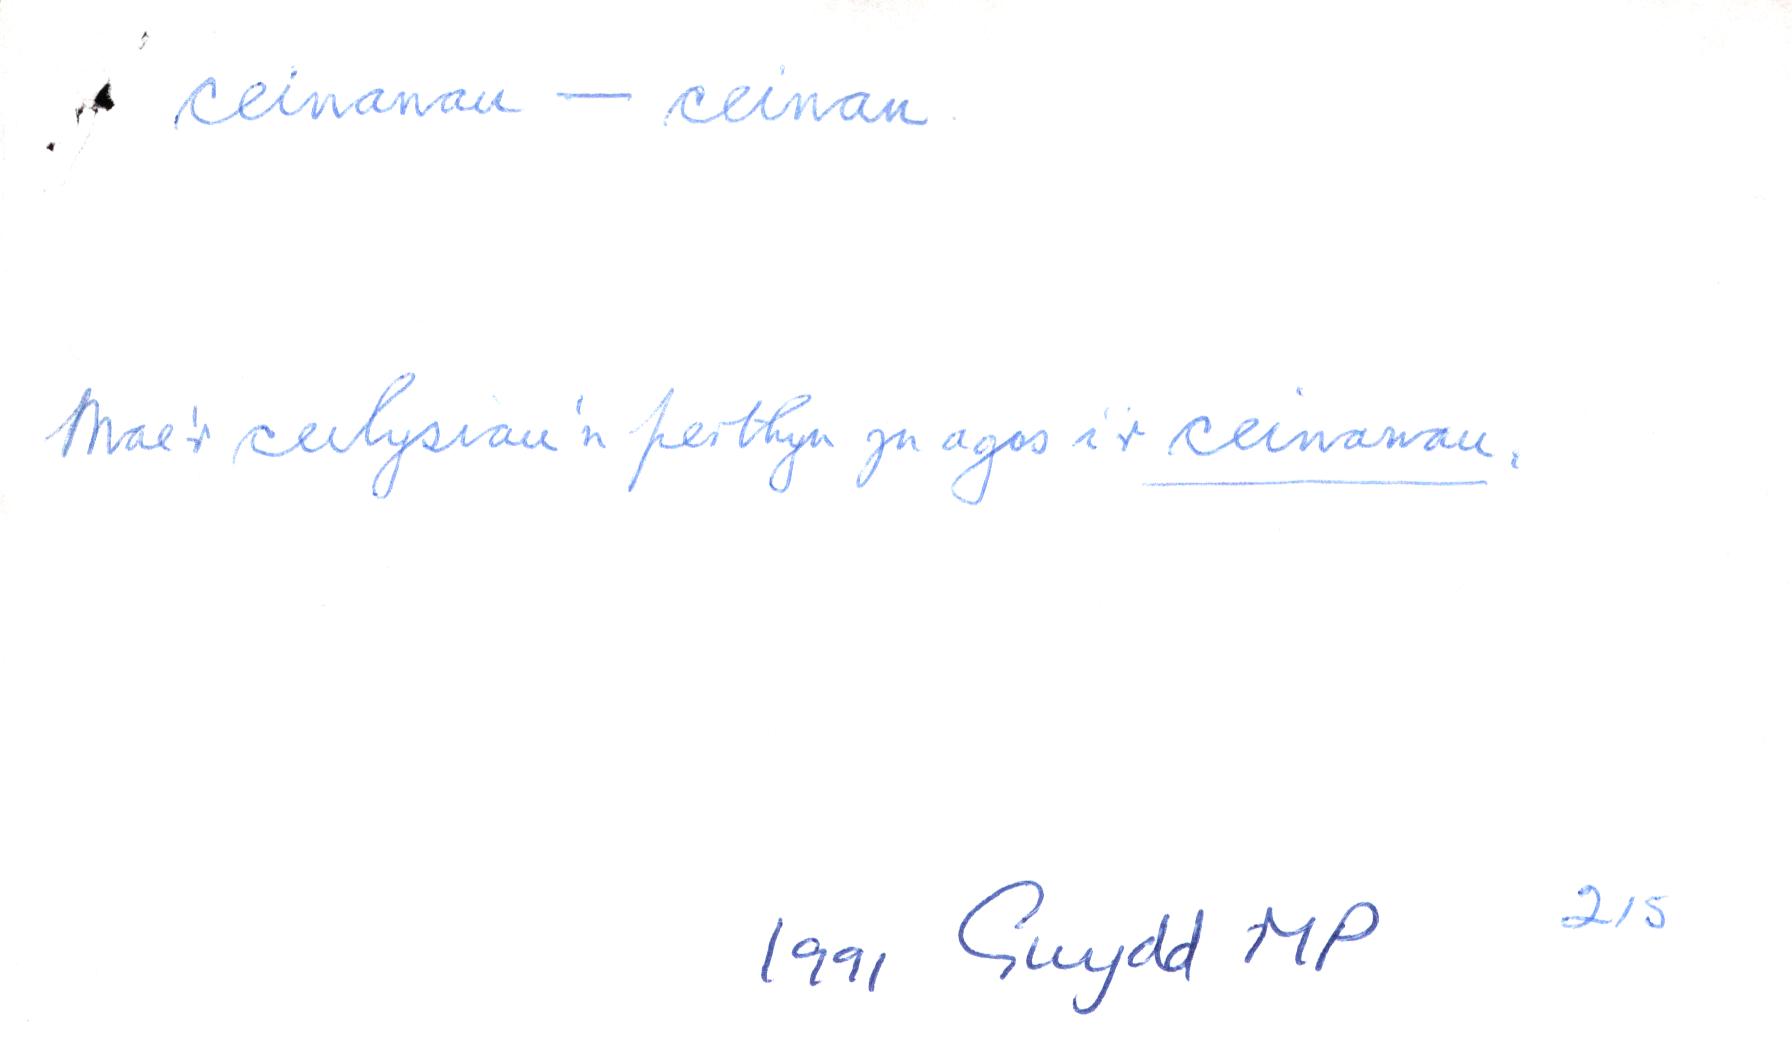 ceinanau — ceinan
Mae'r cerlysiau'n perthyn yn agos i'r ceinanau.
1991 Gwydd MP 215